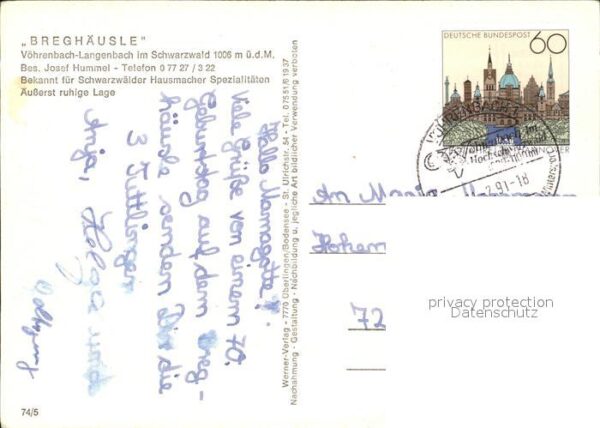 „BREGHÄUSLE"
Vöhrenbach-Langenbach im Schwarzwald 1006 m ü.d.M.
Bes. Josef Hummel - Telefon 0 77 27 / 3 22
Bekannt für Schwarzwälder Hausmacher Spezialitäten
Äußerst ruhige Lage
Hallo
Viele Grüße von einem 70.
Geburtstag auf dem Breg-
häusle senden Dir die
3 Tuttlinger
Anja, Holger und
Wolfgang
74/5
Werner-Verlag - 7770 Überlingen/Bodensee - St. Ulrichstr. 54 - Tel. 07551/6 19 37
Nachahmung - Gestaltung - Nachbildung u. jegliche Art bildlicher Verwendung verboten
DEUTSCHE BUNDESPOST
60
HANNOVER
2.91-18
An
72
privacy protection
Datenschutz